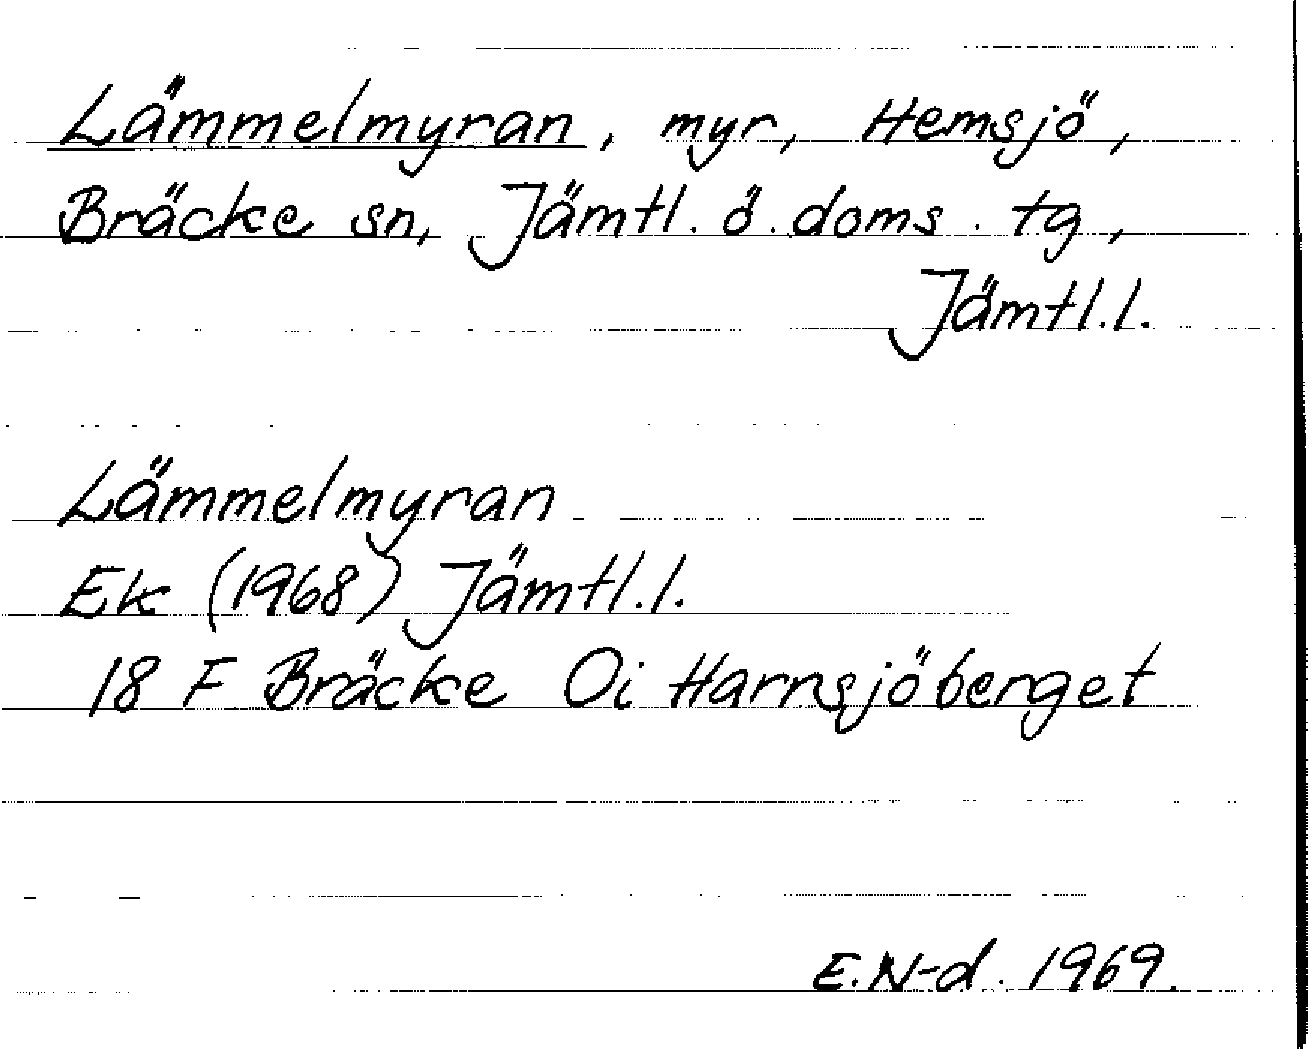 Lämmelmyran, myr, Hemsjö,
Bräcke sn, Jämtl. ö. doms. tg,
Jämtl.l.
Lämmelmyran
Ek (1968) Jämtl.l.
18 F Bräcke Oi Harrsjöberget
E.N-d. 1969.